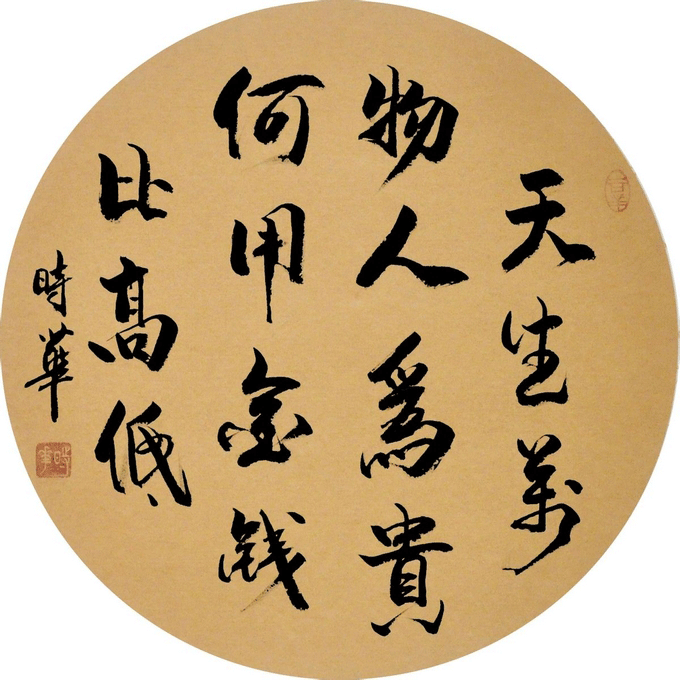 天生萬
物人爲貴
何用金錢
比高低
時華